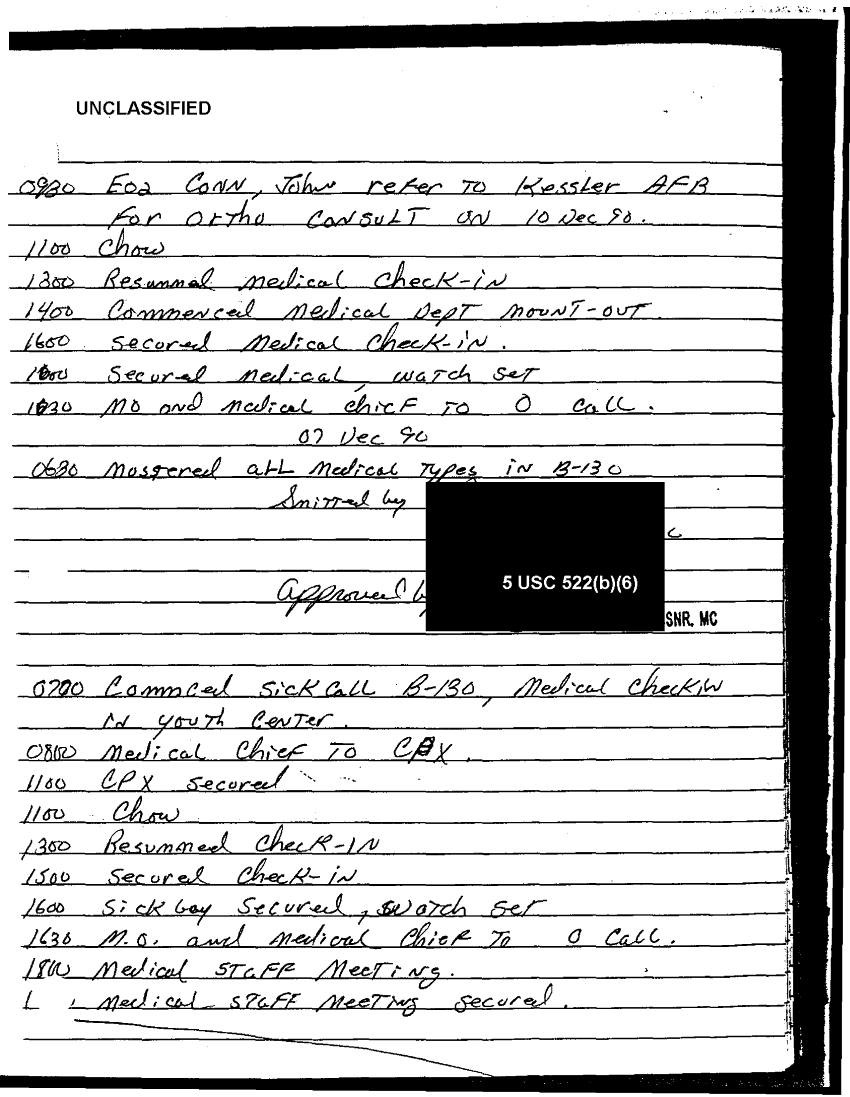 UNCLASSIFIED
0930 EO2 CONN, John refer TO Kessler AFB
For ortho CONSULT ON 10 Dec 90.
1100 Chow
1300 Resummed medical Check-iN
1400 Commenced Medical DepT mouNT-ouT.
1600 secured Medical Check-iN.
Secured medical, watch SeT
MO and medical chief TO O Call.
07 Dec 90
0630 Mostered all Medical Types iN B-130
by
C
Approved
5 USC 522(b)(6)
SNR, MC
0700 Commced SickCall B-130, Medical CheckiN
IN youth CenTer.
0800 Medical Chief To CPX.
1100 CPX secured
1100 Chow
1300 Resummed Check-IN
1500 Secured Check-iN
1600 Sickbay Secured, watch Set
1630 M.O. and medical Chief To O Call.
1800 Medical STaFF MeeTing.
medical STaFF MeeTiNg Secured.